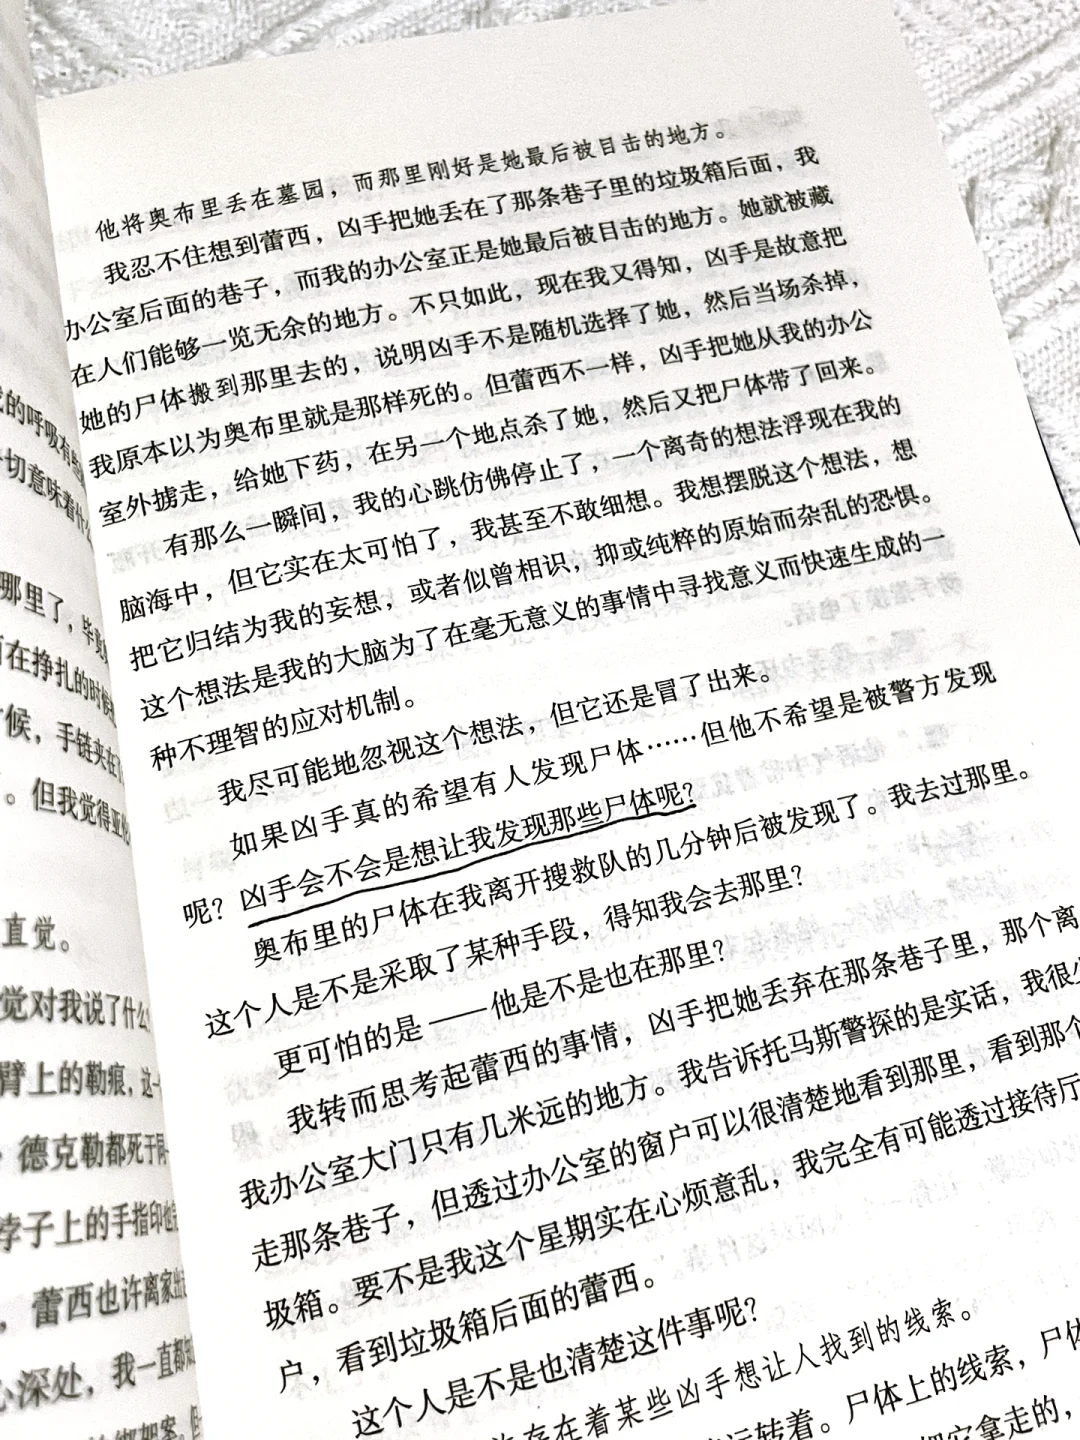 他将奥布里丢在墓园，而那里刚好是她最后被目击的地方。
我忍不住想到蕾西，凶手把她丢在了那条巷子里的垃圾箱后面，我
办公室后面的巷子，而我的办公室正是她最后被目击的地方。她就被藏
在人们能够一览无余的地方。不只如此，现在我又得知，凶手是故意把
她的尸体搬到那里去的，说明凶手不是随机选择了她，然后当场杀掉，
我原本以为奥布里就是那样死的。但蕾西不一样，凶手把她从我的办公
室外掳走，给她下药，在另一个地点杀了她，然后又把尸体带了回来。
有那么一瞬间，我的心跳仿佛停止了，一个离奇的想法浮现在我的
脑海中，但它实在太可怕了，我甚至不敢细想。我想摆脱这个想法，想
把它归结为我的妄想，或者似曾相识，抑或纯粹的原始而杂乱的恐惧。
这个想法是我的大脑为了在毫无意义的事情中寻找意义而快速生成的一
种不理智的应对机制。
我尽可能地忽视这个想法，但它还是冒了出来。
如果凶手真的希望有人发现尸体……但他不希望是被警方发现
呢？凶手会不会是想让我发现那些尸体呢？
奥布里的尸体在我离开搜救队的几分钟后被发现了。我去过那里。
这个人是不是采取了某种手段，得知我会去那里？
更可怕的是——他是不是也在那里？
我转而思考起蕾西的事情，凶手把她丢弃在那条巷子里，那个离
我办公室大门只有几米远的地方。我告诉托马斯警探的是实话，我很少
走那条巷子，但透过办公室的窗户可以很清楚地看到那里，看到那个
圾箱。要不是我这个星期实在心烦意乱，我完全有可能透过接待厅
户，看到垃圾箱后面的蕾西。
这个人是不是也清楚这件事呢？
存在着某些凶手想让人找到的线索。
运转着。尸体上的线索，尸体
把它拿走的，
的呼吸有些
切意味着什么
哪里了，毕竟
在挣扎的时候
候，手链夹在
。但我觉得亚
直觉。
觉对我说了什么
臂上的勒痕，这
德克勒都死于同
脖子上的手指印也
，蕾西也许离家出
心深处，我一直都
绑架案。但